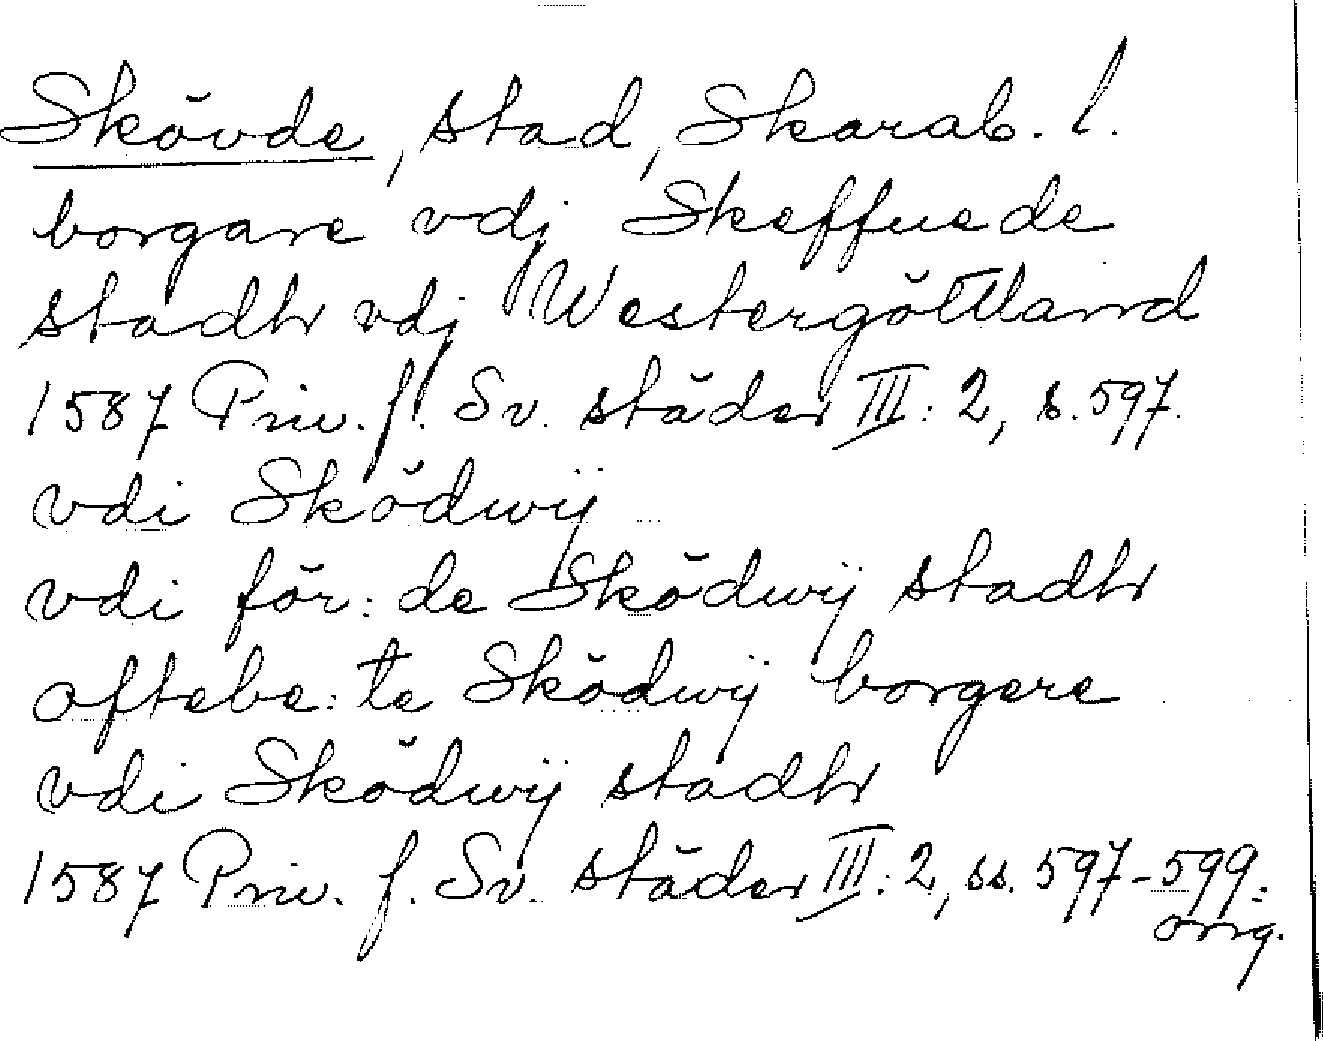 Skövde, stad, Skarab. l.
borgare vdj Skeffuede
stadh vdj Westergöttland
1587 Priv. f. Sv. städer III: 2, s. 597.
vdi Sködwÿ
vdi för: de Sködwÿ stadh
oftebe: te Sködwÿ borgere
vdi Sködwÿ stadh
1587 Priv. f. Sv. städer III: 2, ss. 597-599.
orig.